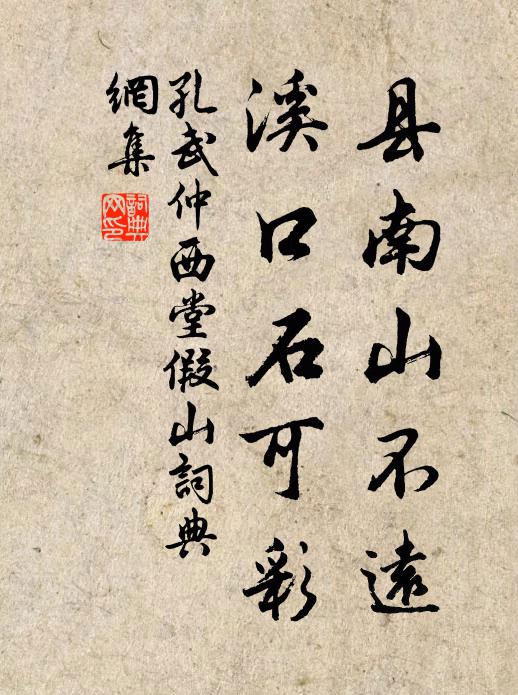 县南山不遠
溪口石可彩
孔武仲西堂假山詞典
網集
詞典
网印